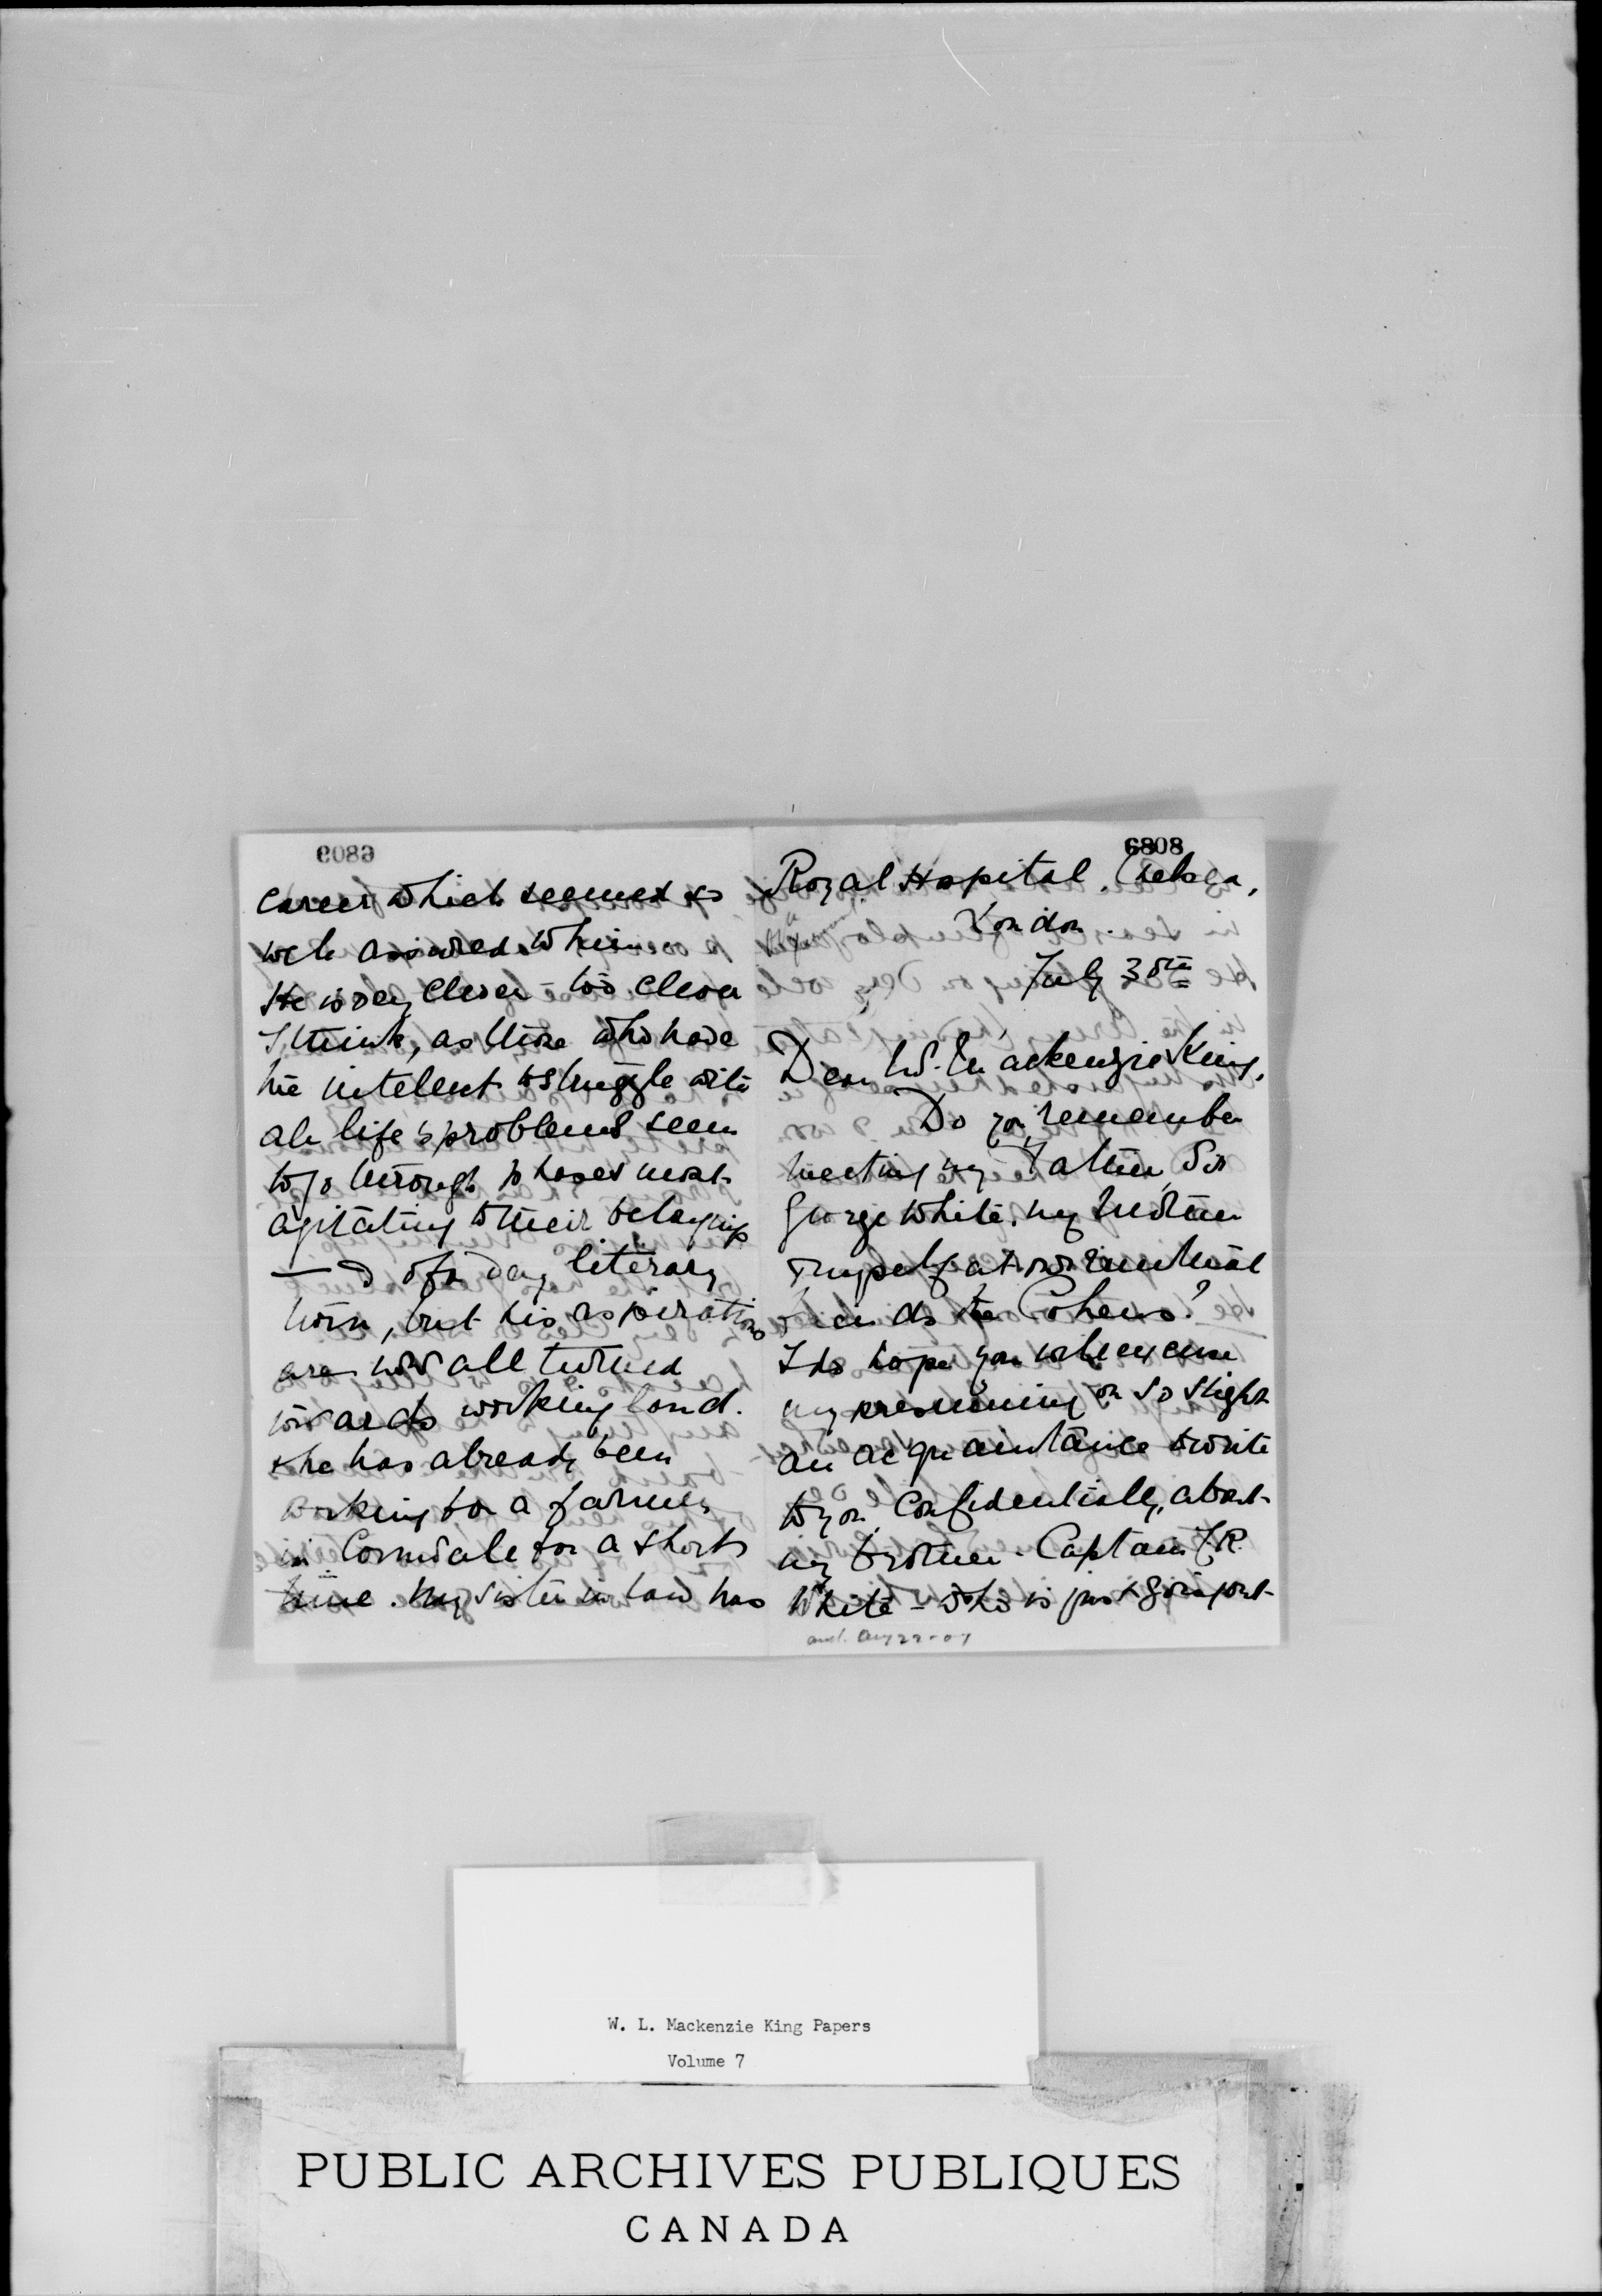 6808
Royal Hospital Chelsea,
London.
July 30th
Dear Mr. Mackenzie King,
Do you remember
meeting my Father, Sir
George White, my brother
& myself at our mutual
friends the Cohens?
I do hope you will excuse
my presuming on so slight
an acquaintance to write
to you, Confidentially, about
my brother - Captain J R.
White - who is just going out
ansd. Aug 22-07
6089
career which seemed so
well assured to him
He is very clever - too clever
I think, as those who have
the intelent to struggle with
all life's problems seem
to go through phases most
agitating to their belongings
— of a very literary
turn, but his aspirations
are now all turned
towards working land.
& he has already been
working for a farmer
in Cornwall for a short
time. My sister in law has
W. L. Mackenzie King Papers
Volume 7
PUBLIC ARCHIVES PUBLIQUES
CANADA